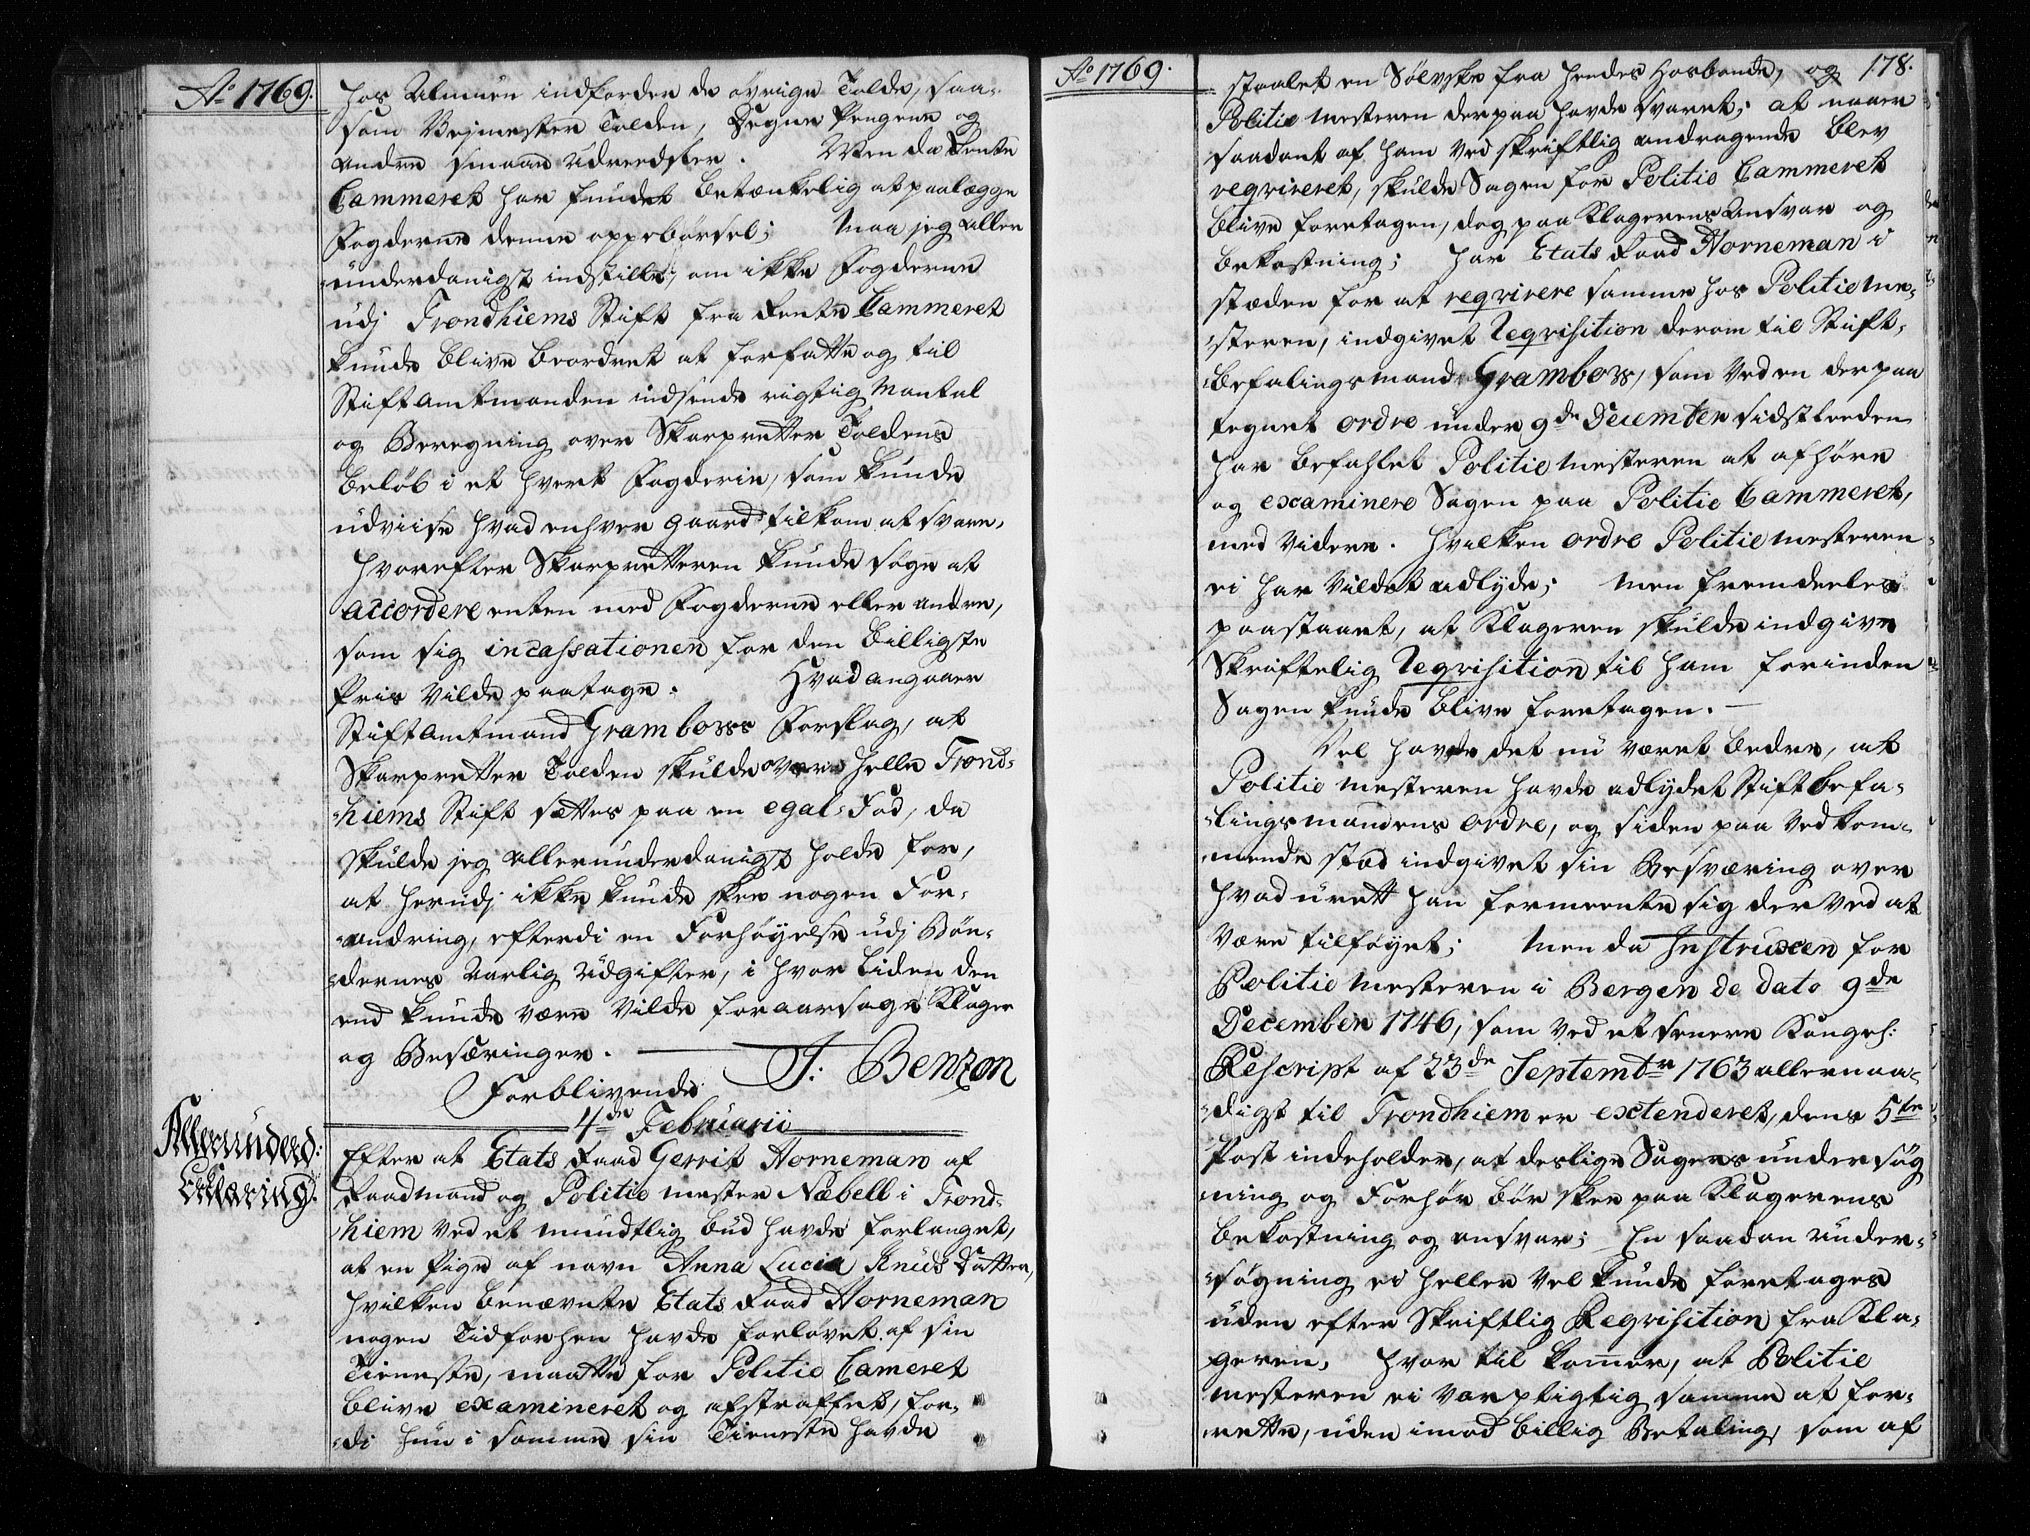 Ao 1769.
hos Almuen indfordre de øvrige Tolde, saa-
som Vejmester Tolden, Degne Pengene og
andre smaae udreedsler. Men da Rente
Cammeret har fundet betænkelig at paalægge
Fogderne denne oppebørsel; Maa jeg aller
underdanigst indstille, om ikke Fogderne
udj Trondhiems Stift fra Rente Cammeret
kunde blive beordret at forfatte og til
Stiftamtmanden indsende rigtig Mantal
og Beregning over Skarpretter Toldens
Beløb i et hvert Fogderie, som kunde
udviise hvad enhver gaard tilkom at svare,
hvorefter Skarpretteren kunde søge at
accordere enten med Fogderne eller andre,
som sig incassationen for den billigste
Priis vilde paatage. Hvad angaaer
Stiftamtmand Grambows Forslag, at
Skarpretter Tolden skulde over heele Trond-
hiems Stift sættes paa en egal Fod, da
skulde jeg allerunderdanigst holde for,
at herudj ikke kunde skee nogen For-
andring, efterdi en Forhøyelse udj Bøn-
dernes Aarlig Udgifter, i hvor liden den
end kunde være vilde foraarsage Klager
og Besværinger.
Forblivende J: Benzon
4de Februarii
Allerunderd:
Erklæring.
Efter at Etats Raad Gerrit Horneman af
Raadmand og Politie mester Næbell i Trond-
hiem ved et mundtlig bud havde forlanget,
at en Pige af navn Anna Lucia Knuds Datter,
hvilken benævnte Etats Raad Horneman
nogen Tid forhen havde forløvet af sin
Tieneste, maatte for Politie Cameret
blive examineret og afstraffet, for-
di hun i samme sin Tieneste havde
Ao 1769.
178.
staalet en Sølvske fra hendes Hosbonde, og
Politie mesteren derpaa havde svaret; at naar
saadant af ham ved skriftlig andragende blev
reqvireret, skulde Sagen for Politie Cammeret
blive foretagen, dog paa Klagerens Ansvar og
bekostning; har Etats Raad Horneman i
stæden for at reqvirere samme hos Politieme-
steren, indgivet Reqvisition derom til Stift-
befalingsmand Grambow, som ved en derpaa
tegnet ordre under 9de December sidstleeden
har befahlet Politie mesteren at afhøre
og examinere Sagen paa Politie Cammeret,
med videre. Hvilken ordre Politie mesteren
ei har vildet adlyde; Men fremdeeles
paastaaet, at Klageren skulde indgive
Skriftelig Reqvisition til ham forinden
Sagen kunde blive foretagen.
Vel havde det nu været bedre, at
Politie mesteren havde adlydet Stiftbefa-
lingsmandens ordre, og siden paa vedkom-
mende stæd indgivet sin Besværing over
hvad urett han formeente sig derved at
være tilføyet; Men da Instruxen for
Politie mesteren i Bergen de dato 9de
December 1746, som ved et senere Kongel:
Rescript af 23de Septembr 1763 allernaa-
digst til Trondhiem er extenderet, dens 5te
Post indeholder, at deslige Sagers undersøg
ning og Forhør bør skee paa Klagerens
bekostning og ansvar; En saadan under-
søgning ei heller vel kunde foretages
uden efter Skriftlig Reqvisition fra Kla-
geren, hvor til kommer, at Politie
mesteren ei var pligtig samme at for-
rette, uden imod billig Betaling, som af